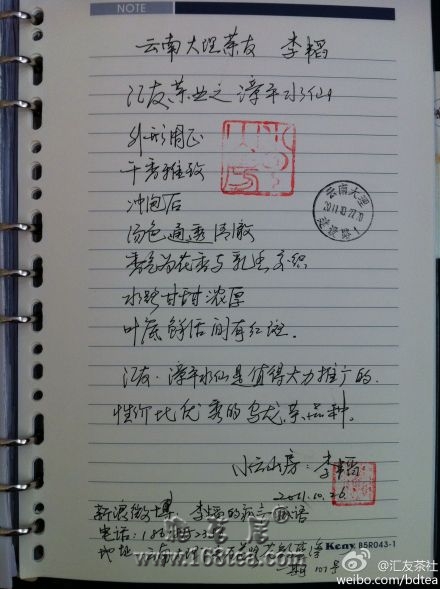 NOTE
云南大理茶友 李韬
汇友茶业之漳平水仙
外形周正
干香雅致
冲泡后
汤色通透清澈
香气为花香与乳香交织
水路甘甜浓厚
叶底鲜活间有红斑.
汇友·漳平水仙是值得大力推广的.
性价比优秀的乌龙茶品种。
云南大理
2011.10.27.20
小云山房: 李韬
2011.10.26
新浪微博: 李韬的
电话:
地址 云南大理
Keny B5R043-1
一期 107号
www.168tea.com
@汇友茶社
weibo.com/bdtea